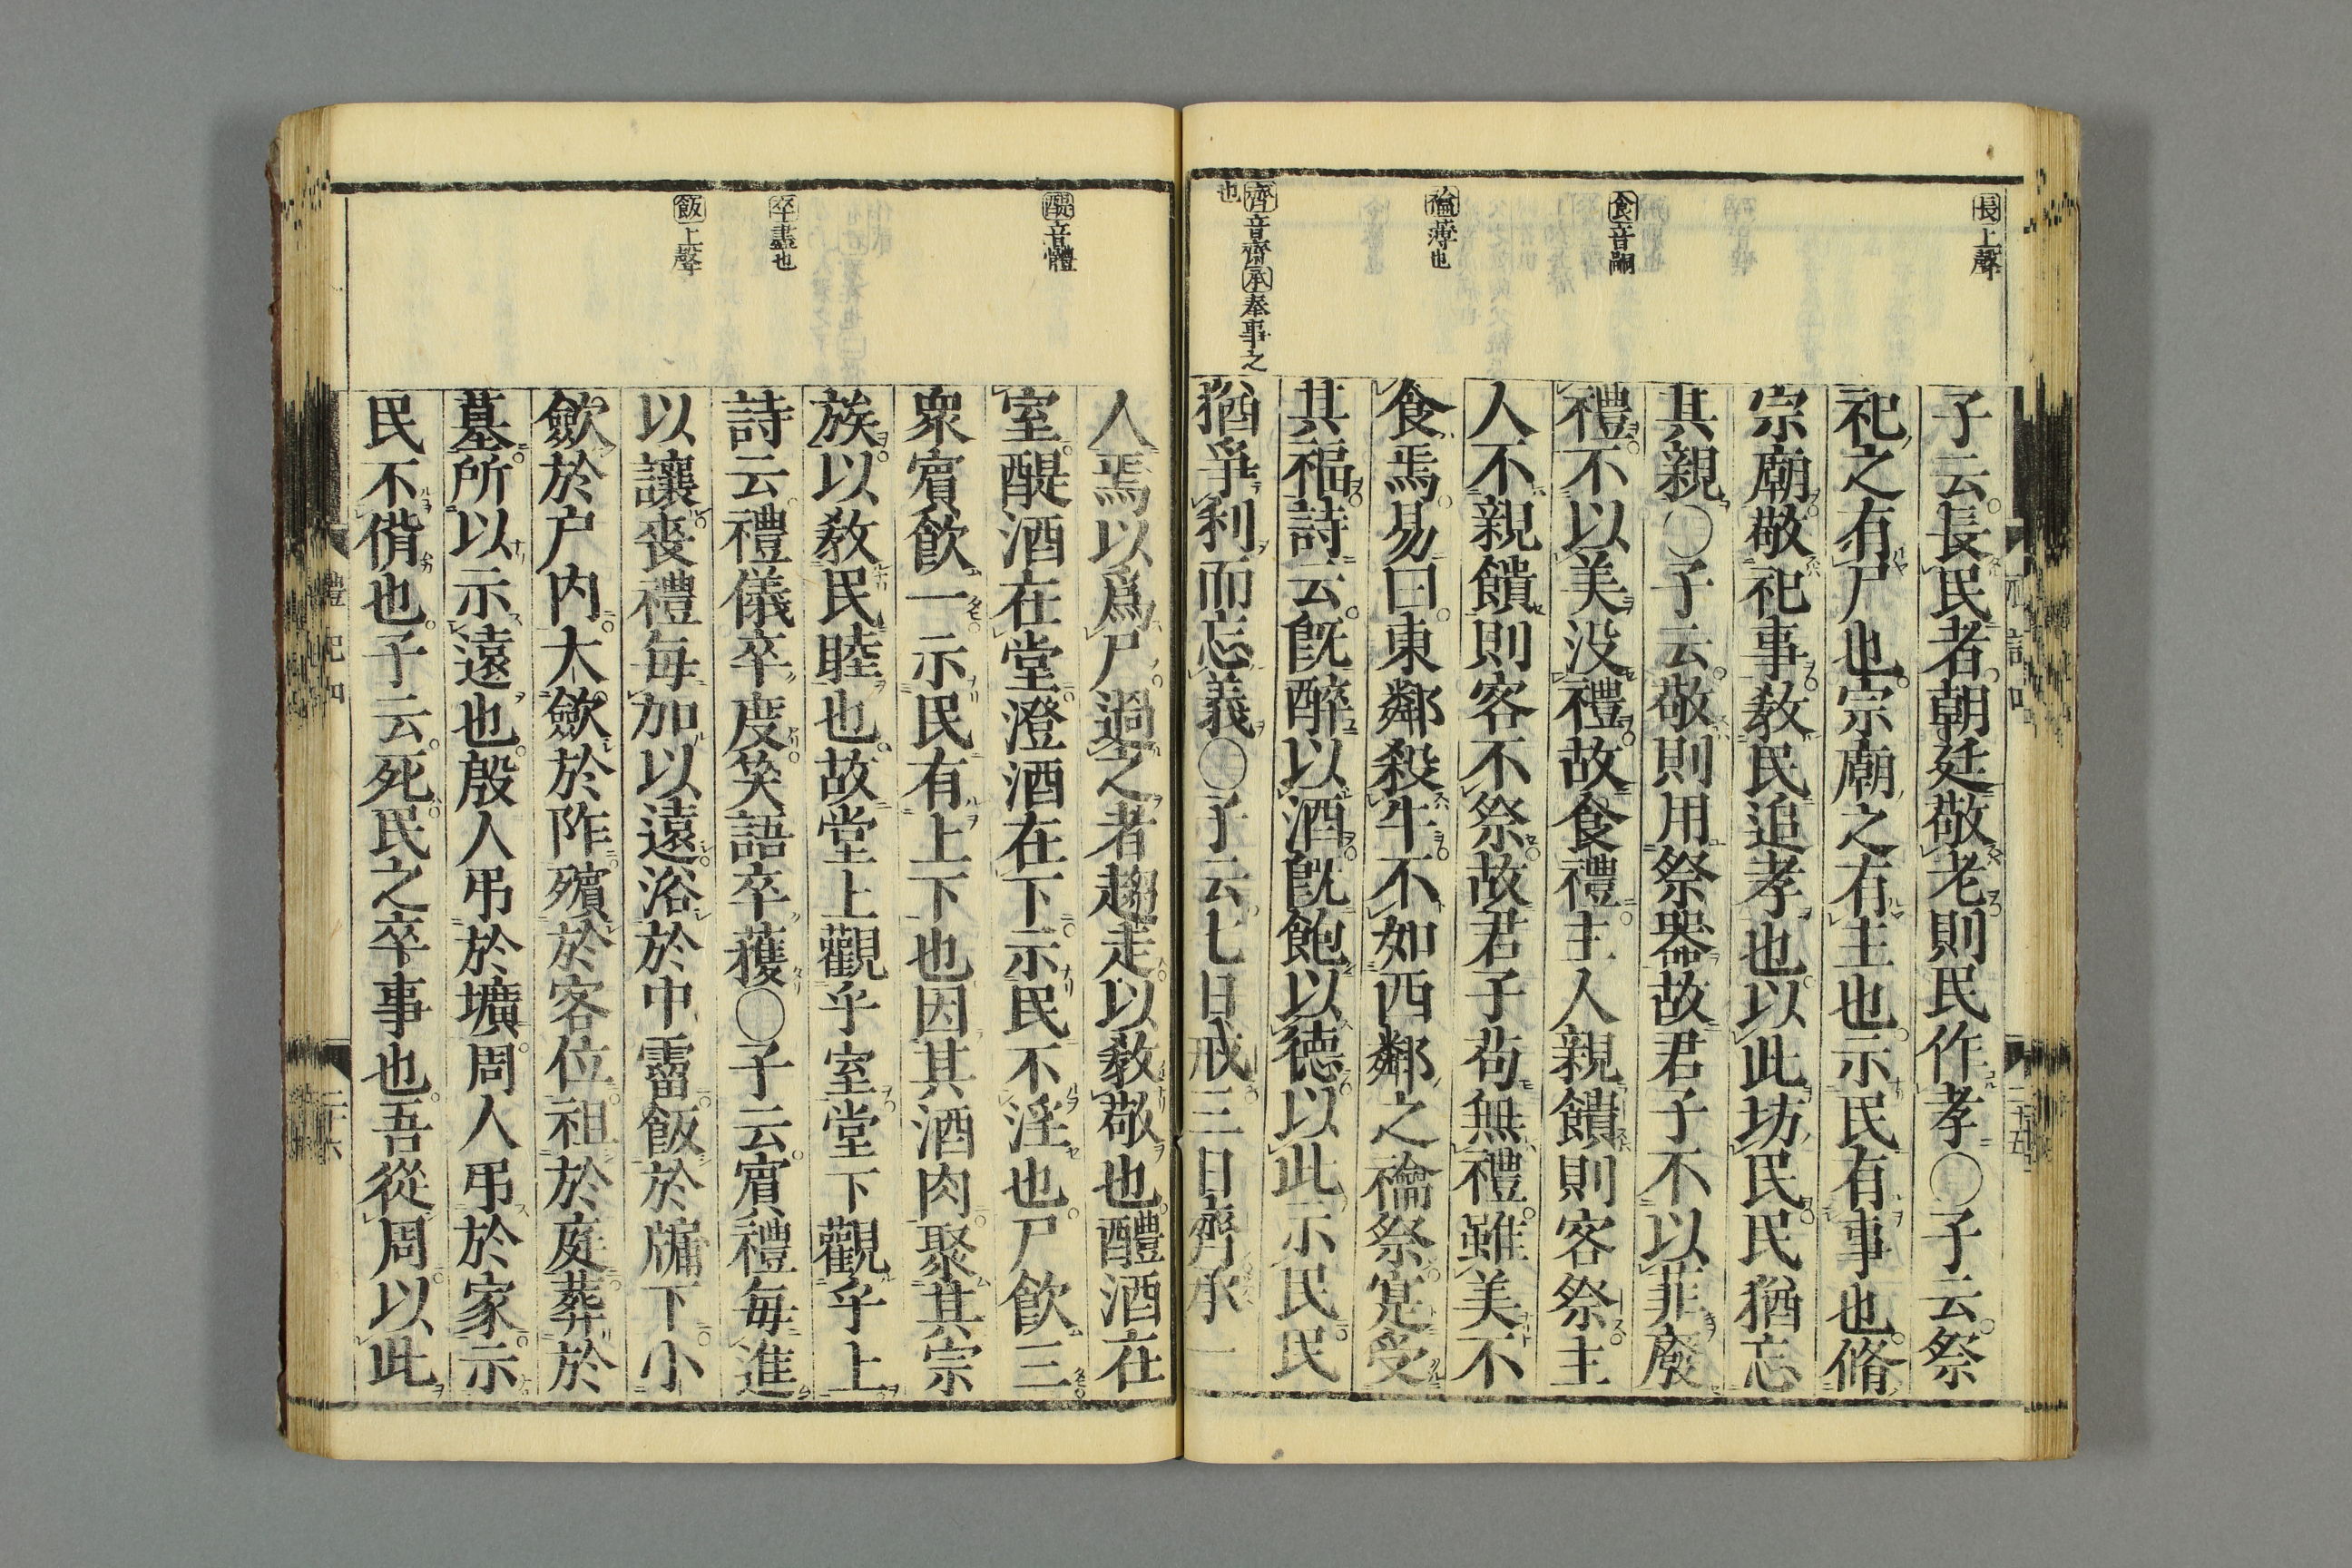 長上聲
食音嗣
禴薄也
齊音齋承奉事之
也
子云長民者朝廷敬老則民作孝○子云祭
祀之有尸也宗廟之有主也示民有事也脩
宗廟敬祀事教民追孝也以此坊民民猶忘
其親○子云敬則用祭器故君子不以菲廢
禮不以美没禮故食禮主人親饋則客祭主
人不親饋則客不祭故君子苟無禮雖美不
食焉易曰東鄰殺牛不如西鄰之禴祭寔受
其福詩云既醉以酒既飽以德以此示民民
猶爭利而忘義○子云七日戒三日齊承一
醍音體
卒盡也
飯上聲
人焉以爲尸過之者趨走以教敬也醴酒在
室醍酒在堂澄酒在下示民不淫也尸飲三
衆賓飲一示民有上下也因其酒肉聚其宗
族以教民睦也故堂上觀乎室堂下觀乎上
詩云禮儀卒度笑語卒獲○子云賓禮每進
以讓喪禮每加以遠浴於中霤飯於牖下小
歛於户内大歛於阼殯於客位祖於庭葬於
墓所以示遠也殷人弔於壙周人弔於家示
民不偝也子云死民之卒事也吾從周以此
禮記四
二十六